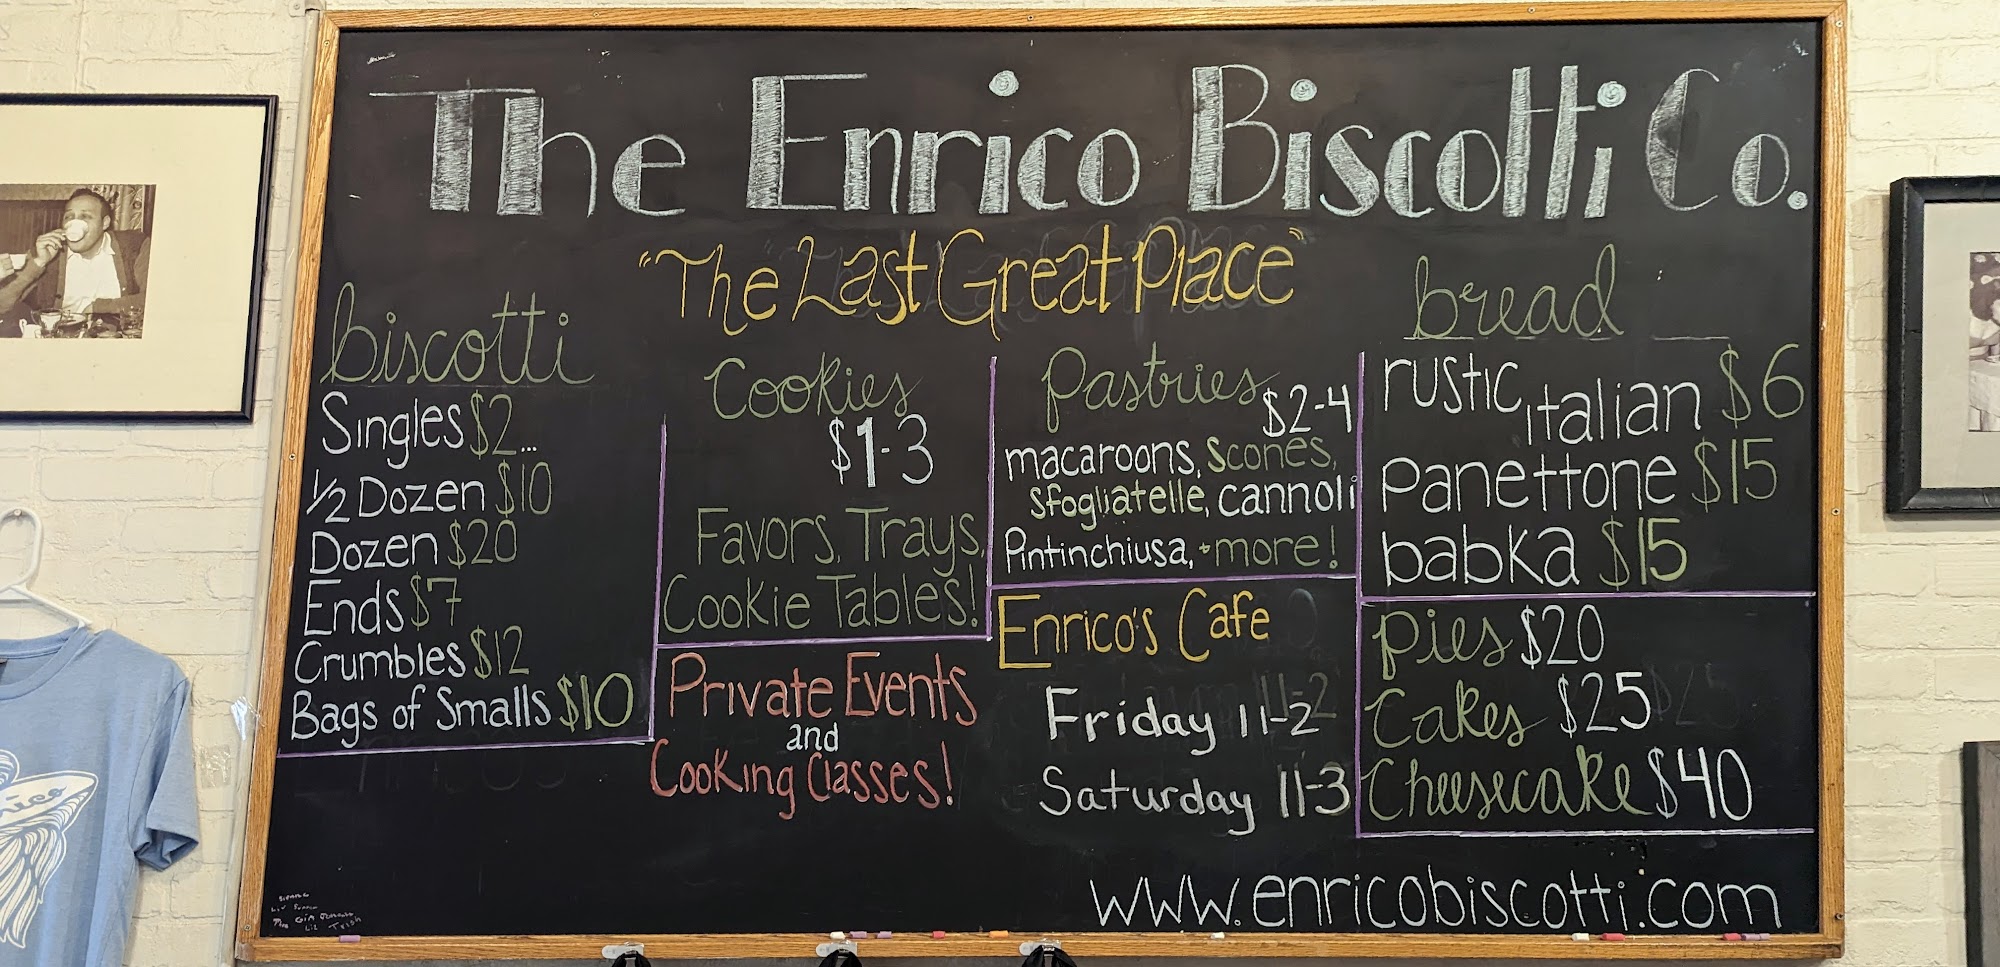 The Enrico Biscotti Co.
"The Last Great Place"
biscotti
Singles $2...
1/2 Dozen $10
Dozen $20
Ends $7
Crumbles $12
Bags of Smalls $10
Cookies
$1-3
Favors, Trays,
Cookie Tables!
Private Events
and
Cooking Classes!
Pastries
$2-4
macaroons, scones,
sfogliatelle, cannoli
Pintinchiusa, + more!
Enrico's Cafe
Friday 11-2
Saturday 11-3
bread
rustic italian $6
Panettone $15
babka $15
Pies $20
Cakes $25
Cheesecake $40
www.enricobiscotti.com